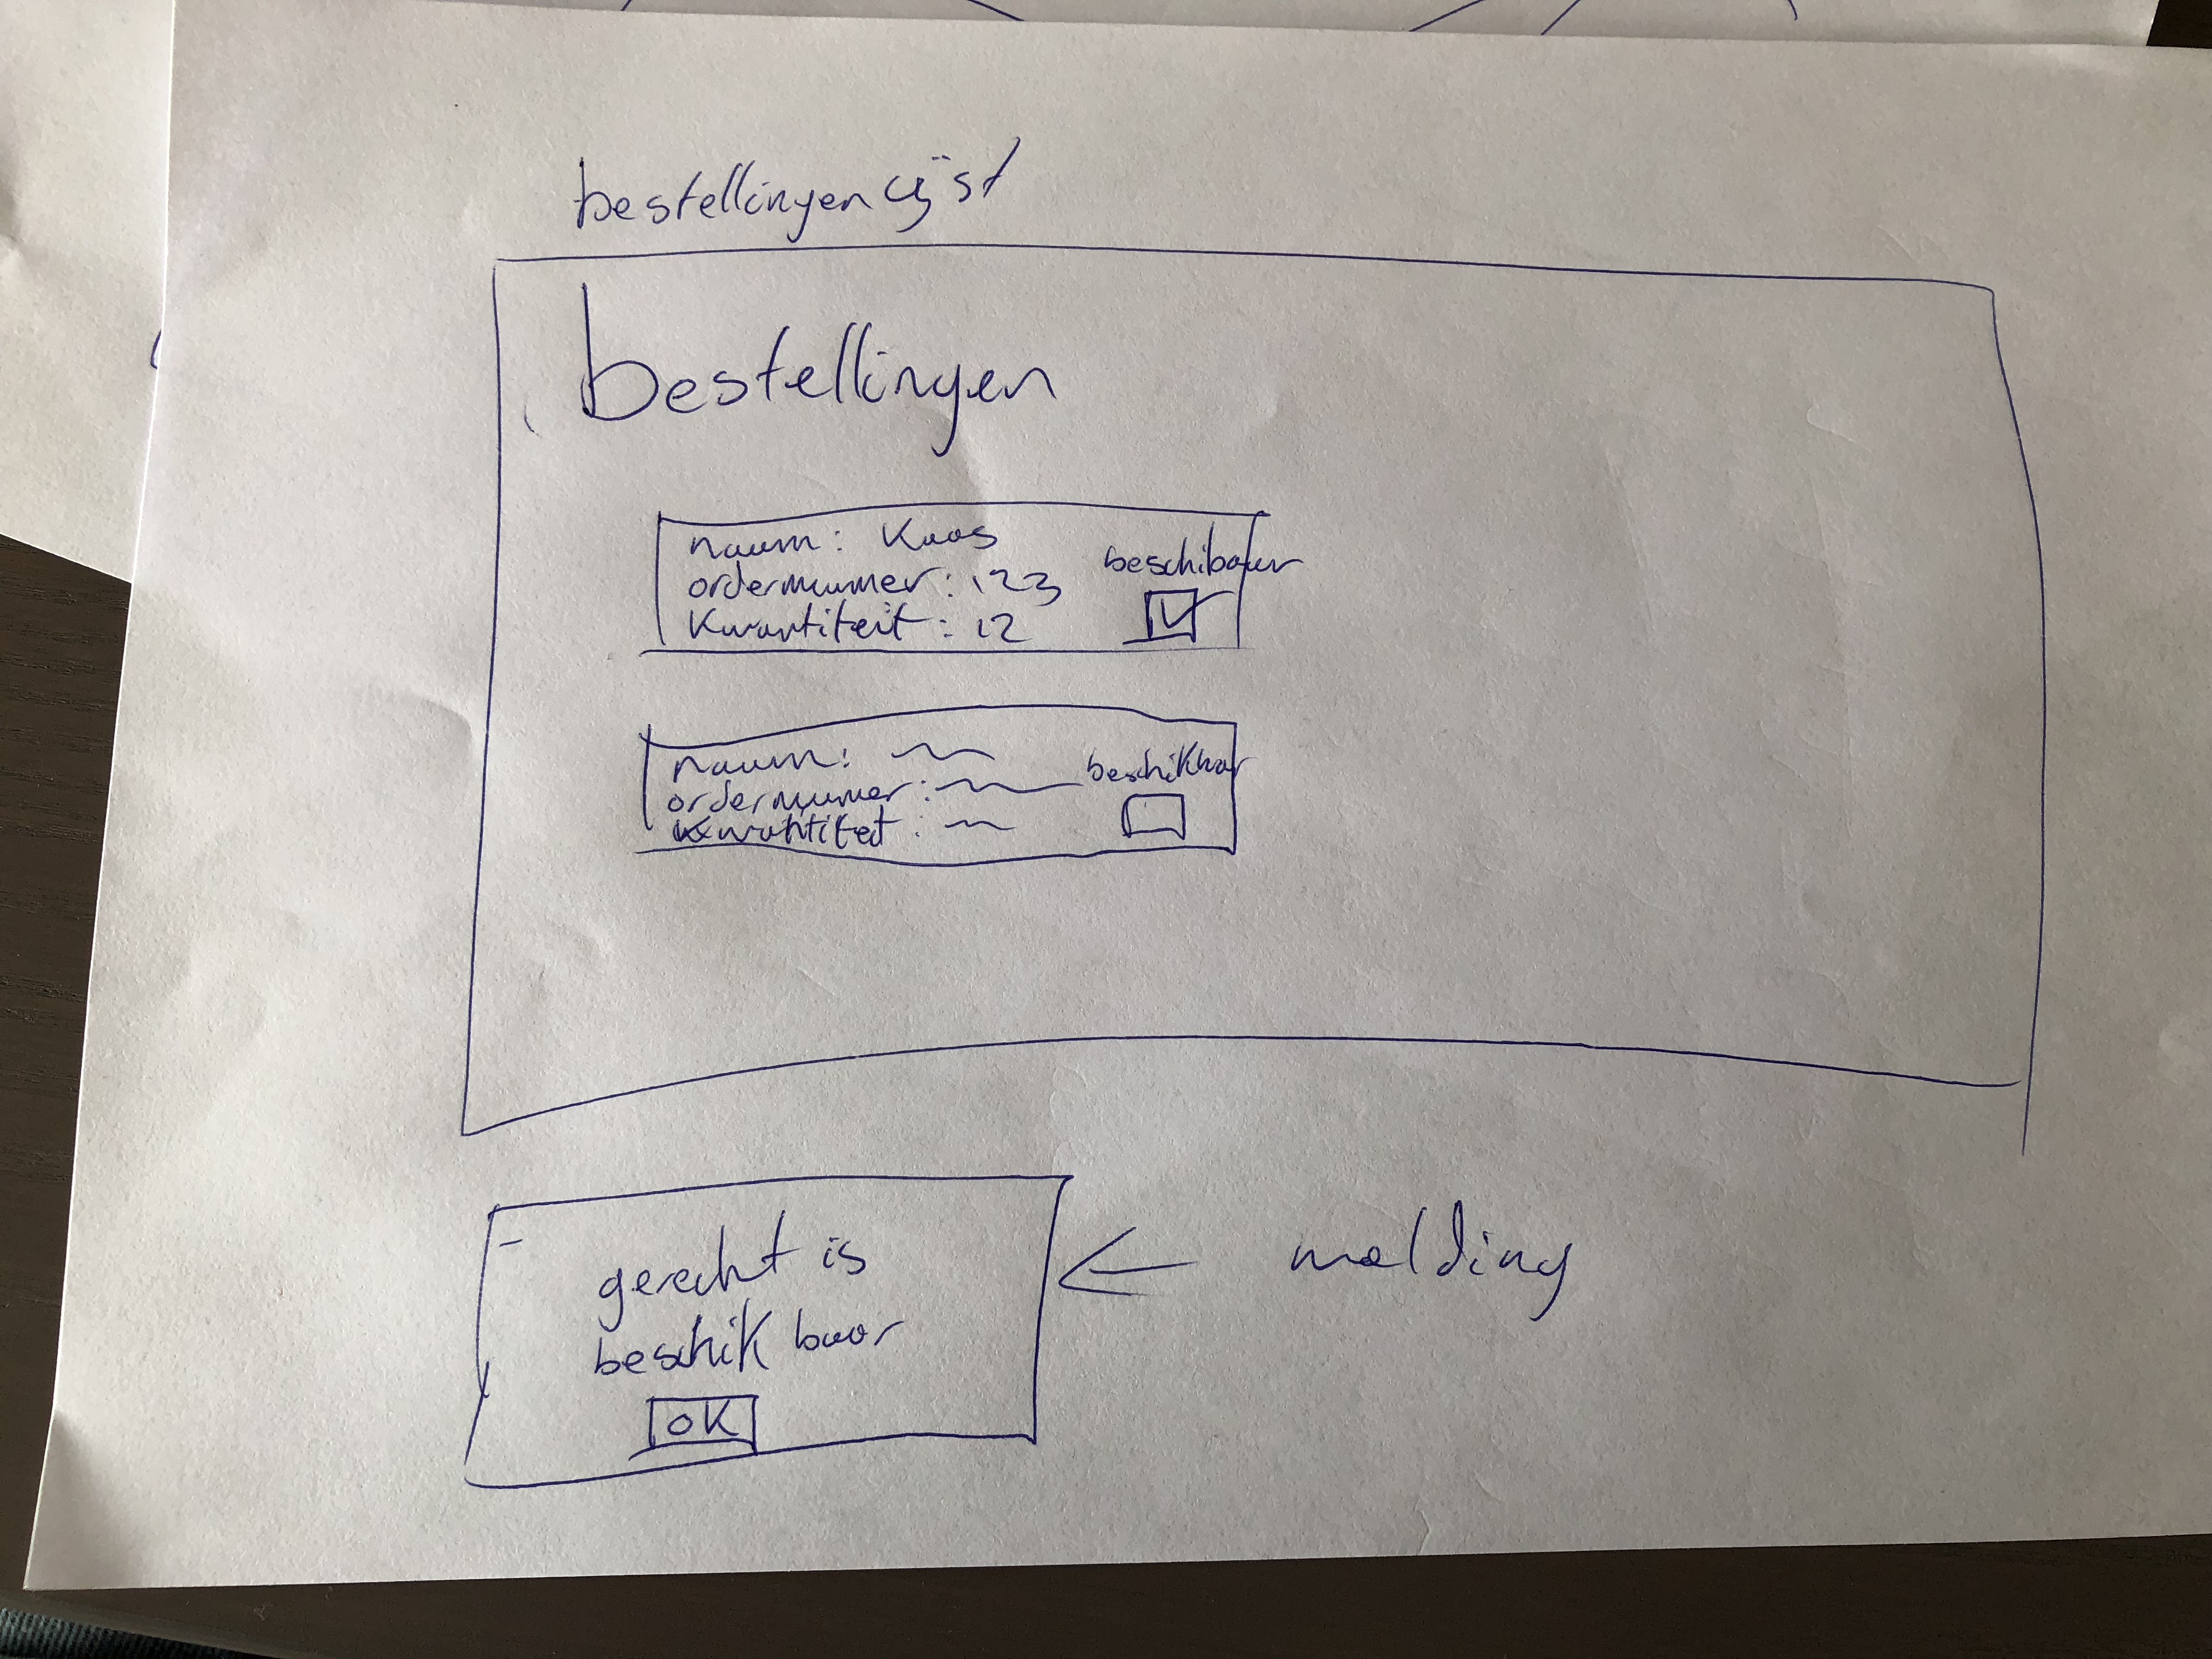 bestellingen lijst
bestellingen
naam: Kaas
ordernummer: 123
Kwantiteit: 12
beschibaar
naam:
ordernummer:
Kwantiteit:
beschikbaar
gerecht is
beschikbaar
OK
melding